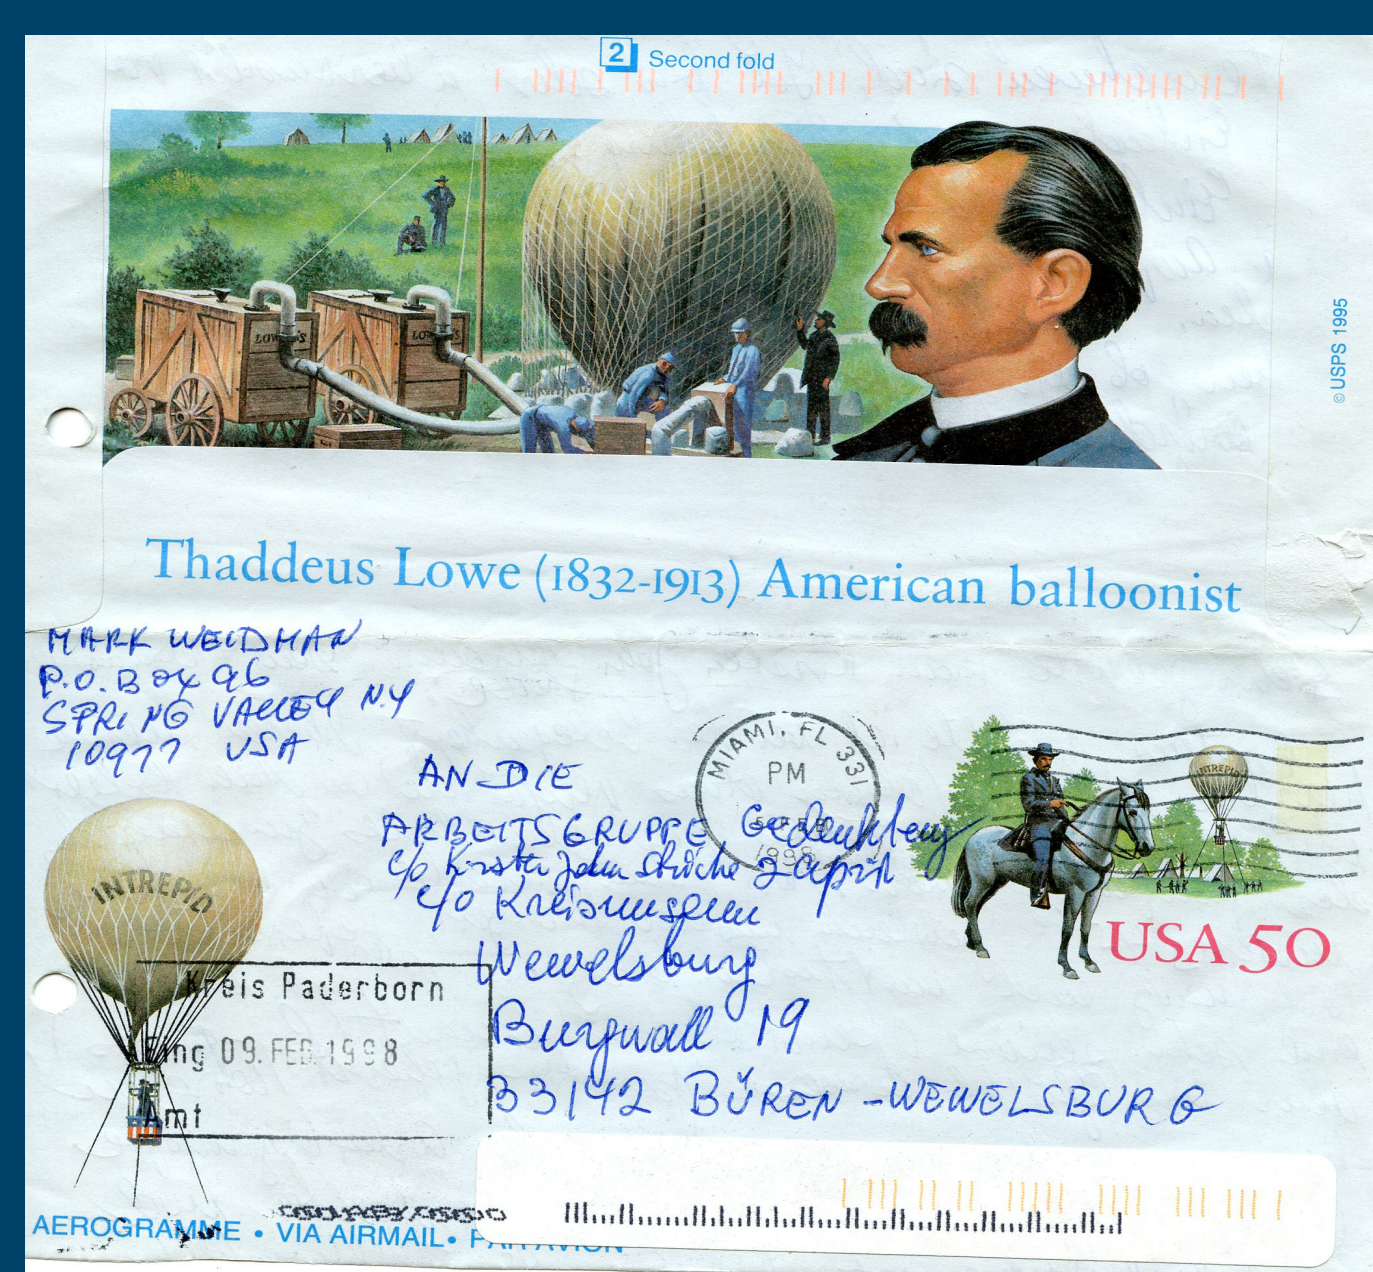 2 Second fold
LOWE'S
© USPS 1995
Thaddeus Lowe (1832-1913) American balloonist
MARK WEIDMAN
P.O. BOX 96
SPRING VALLEY NY
10977 USA
MIAMI, FL 331
PM
FEB
1998
INTREPID
USA 50
AN DIE
ARBEITSGRUPPE Gedenktag
2 April
c/o Kreismuseum
Wewelsburg
Burgwall 19
33142 BÜREN-WEWELSBURG
INTREPID
Kreis Paderborn
Eing 09. FEB. 1998
Amt
AEROGRAMME • VIA AIRMAIL • PAR AVION